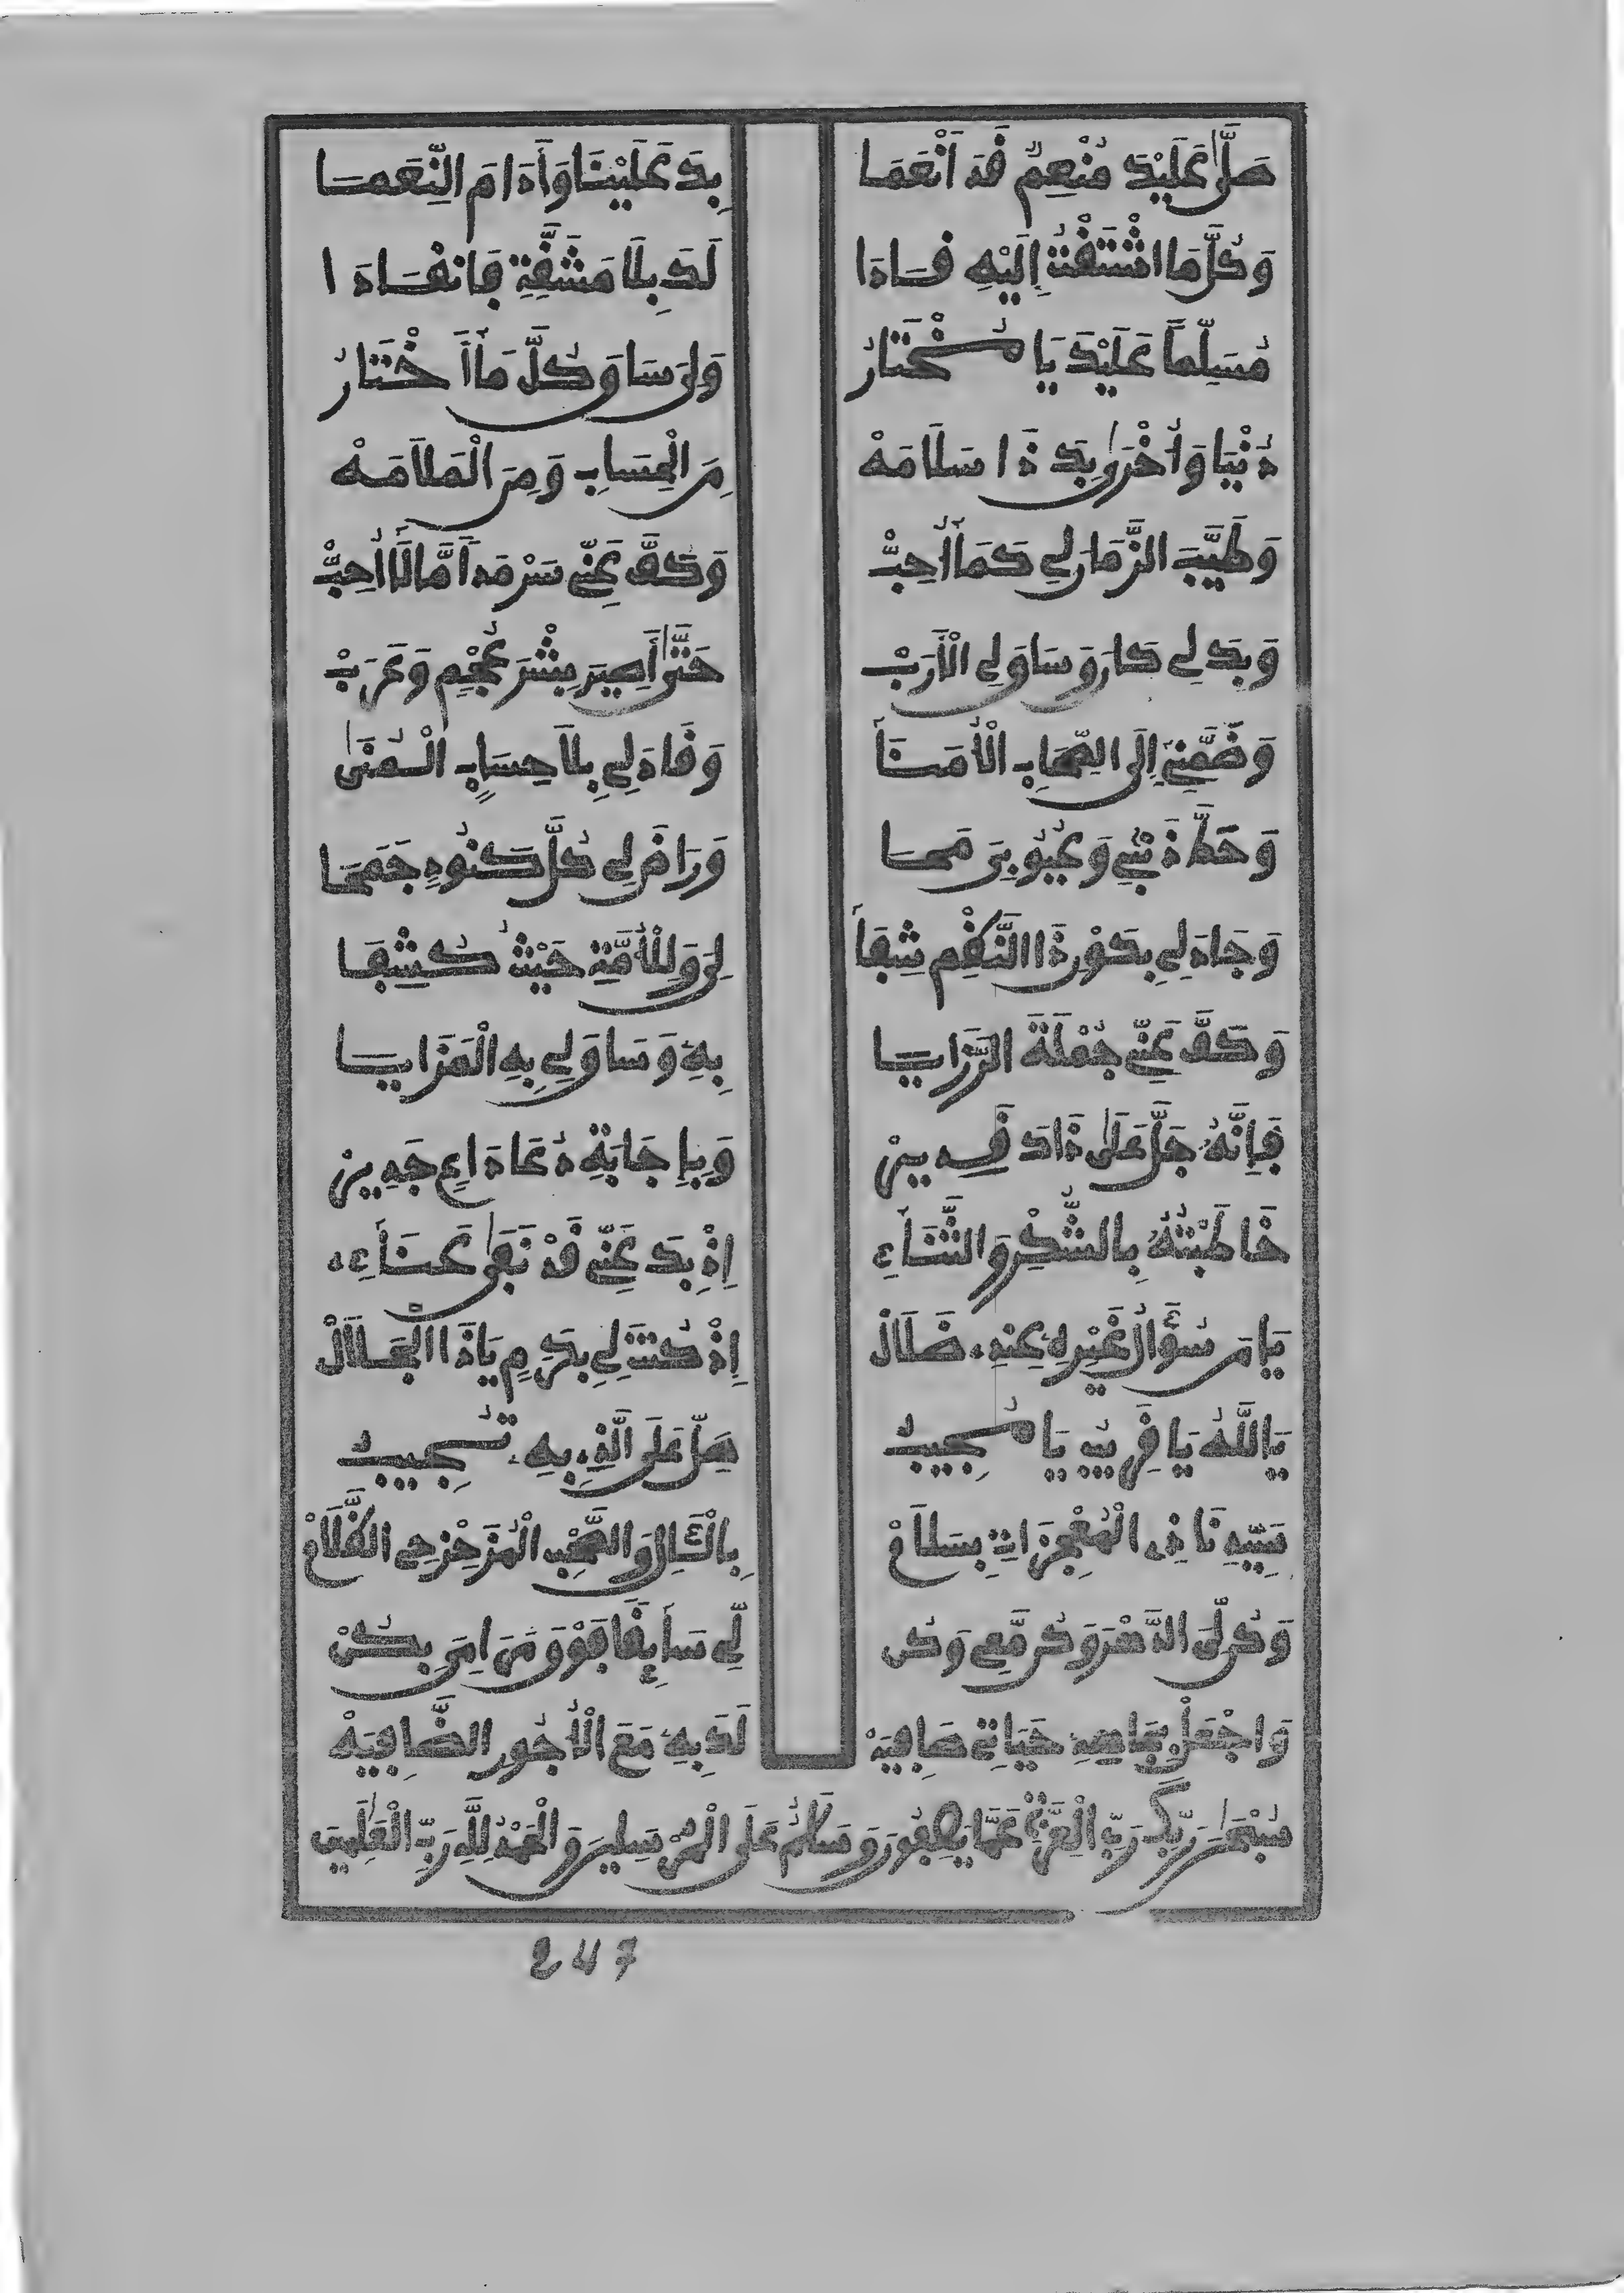 صَلَّىٰ عَلَيْكَ مُنْعِمٌ قَدَ اَنْعَمَا بِكَ عَلَيْنَا وَأَدَامَ النِّعَمَا
وَكُلَّمَا اشْتَقْتُ إِلَيْهِ قَادَا لَكَ بِلَا مَشَقَّةٍ فَانْقَادَا
مُسَلِّماً عَلَيْكَ يَا مُخْتَارُ وَلِيَ سَاقَ كُلَّ مَا أَخْتَارُ
دُنْيَا وَأُخْرَىٰ بِكَ ذَا سَلَامَهْ مِنَ الْحِسَابِ وَمِنَ الْمَلَامَهْ
وَطَيَّبَ الزَّمَانَ لِي كَمَا أُحِبُّ وَكَفَّ عَنِّي سَرْمَداً مَّا لَا أُحِبُّ
وَبِكَ لِي كَانَ وَسَاقَ لِي الْأَرَبْ حَتَّىٰ أَصِيرَ بِشْرَ عُجْمٍ وَعَرَبْ
وَضَمَّنِي إِلَى الصِّحَابِ الْأُمَنَا وَقَادَ لِي بِلَا حِسَابٍ الْمُنَىٰ
وَحَطَّ ذَنْبِي وَعُيُوبِيَ مَحَا وَرَاضَ لِي كُلَّ كَنُودٍ جَمَحَا
وَجَادَ لِي بِكَوْنِ ذَا النَّظْمِ شِفَا لِيَ وَلِلْأُمَّةِ حَيْثُ كُشِفَا
وَكَفَّ عَنِّي جُمْلَةَ الرَّزَايَا بِهِ وَسَاقَ لِي بِهِ الْمَزَايَا
فَإِنَّهُ جَلَّ عَلَىٰ ذَاكَ قَدِيرْ وَبِإِجَابَةِ دُعَا دَاعٍ جَدِيرْ
خَاطَبْتُهُ بِالشُّكْرِ وَالثَّنَاءِ إِذْ بِكَ عَنِّي قَدْ نَفَىٰ عَنَاءِ
يَا مَن سُؤَالُ غَيْرِهِ عِنْدِي ضَلَالْ إِذْ كُنتَ لِي بِكَرَمٍ يَا ذَا الْجَلَالْ
يَا اللَّهُ يَا قَرِيبُ يَا مُجِيبُ صَلِّ عَلَى الَّذِي بِهِ تُجِيبُ
سَيِّدِنَا ذِي الْمُعْجِزَاتِ بِسَلَامْ بِالْآلِ وَالصَّحْبِ الْمُزَحْزِحِي الظَّلَامْ
وَكُن لِّيَ الدَّهْرَ وَكُن مَّعِي وَكُن لِّي سَائِقًا فَوْقَ مَرَامِيَ بِكُنْ
وَاجْعَلْ بِجَاهِهِ حَيَاتِي صَافِيَهْ لَكَ بِهِ مَعَ الْأُجُورِ الضَّافِيَهْ
سُبْحَٰنَ رَبِّكَ رَبِّ الْعِزَّةِ عَمَّا يَصِفُونَ وَسَلَٰمٌ عَلَى الْمُرْسَلِينَ وَالْحَمْدُ لِلَّهِ رَبِّ الْعَٰلَمِينَ
247